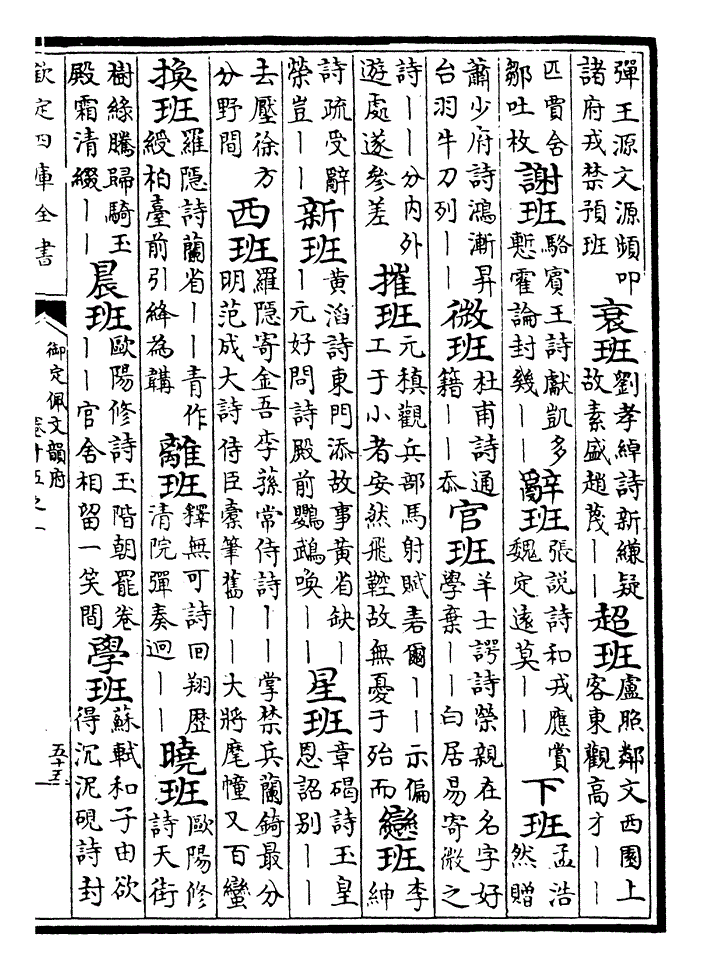 彈王源文源頻叩諸府戎禁預班 衰班劉孝綽詩新縑疑故素盛趙蔑丨丨 超班盧照鄰文西園上客東觀高才丨丨
匹賈舍鄒吐枚 謝班駱賓王詩獻凱多慙霍論封幾丨丨 辭班張説詩和戎應賞魏定遠莫丨丨 下班孟浩然贈
蕭少府詩鴻漸昇台羽牛刀列丨丨 微班杜甫詩通籍丨丨忝 官班羊士諤詩榮親在名字好學棄丨丨白居易寄微之
詩丨丨分内外遊處遂參差 摧班元稹觀兵部馬射賦君爾丨丨示偏工于小者安然飛鞚故無憂于殆而 戀班李紳
詩疏受辭榮豈丨丨 新班黄滔詩東門添故事黄省缺丨丨元好問詩殿前鸚鵡喚丨丨 星班章碣詩玉皇恩詔别丨丨
去壓徐方分野間 西班羅隱寄金吾李蓀常侍詩丨丨掌禁兵蘭錡最分明范成大詩侍臣橐筆舊丨丨大將麾幢又百蠻
換班羅隱詩蘭省丨丨青作綬柏臺前引絳為韝 離班釋無可詩回翔歴清院彈奏迥丨丨 曉班歐陽修詩天街
樹緑騰歸騎玉殿霜清綴丨丨 晨班歐陽修詩玉階朝罷卷丨丨官舍相留一笑間 學班蘇軾和子由欲得沉泥硯詩封
欽定四庫全書
御定佩文韻府
卷十五之一
五十五